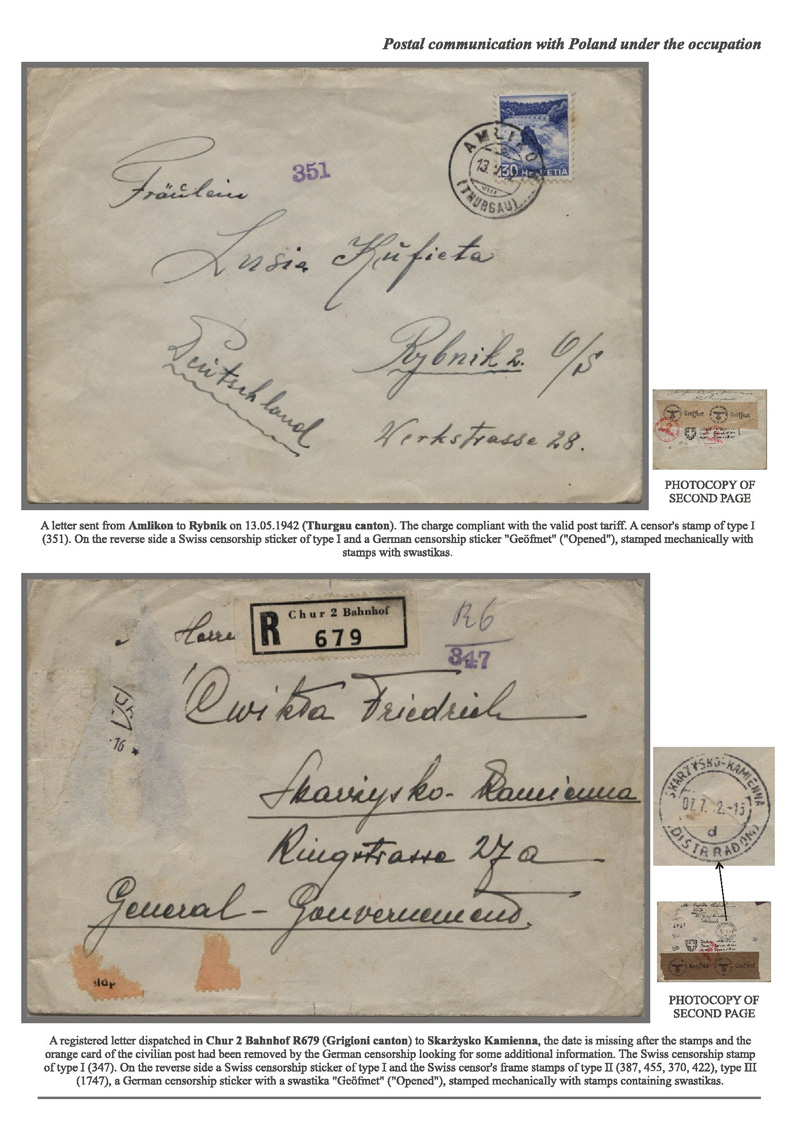 Postal communication with Poland under the occupation
351
AMLIKON
13.
VIII
(THURGAU)
30 HELVETIA
Fräulein
Lusia Kufieta
Rybnik 2. O/S
Deutschland
Werkstrasse 28.
Geöffnet Geöffnet
PHOTOCOPY OF
SECOND PAGE
A letter sent from Amlikon to Rybnik on 13.05.1942 (Thurgau canton). The charge compliant with the valid post tariff. A censor's stamp of type I
(351). On the reverse side a Swiss censorship sticker of type I and a German censorship sticker "Geöfmet" ("Opened"), stamped mechanically with
stamps with swastikas.
Herrn
R Chur 2 Bahnhof
679
R6
347
16
Cwikta Friedrich
Skarżysko-Kamienna
Ringstrasse 27a
General-Gouvernement.
SKARZYSKO-KAMIENNA
07.7. 2.-15
d
(DISTR RADOM)
Geöffnet Geöffnet
PHOTOCOPY OF
SECOND PAGE
A registered letter dispatched in Chur 2 Bahnhof R679 (Grigioni canton) to Skarżysko Kamienna, the date is missing after the stamps and the
orange card of the civilian post had been removed by the German censorship looking for some additional information. The Swiss censorship stamp
of type I (347). On the reverse side a Swiss censorship sticker of type I and the Swiss censor's frame stamps of type II (387, 455, 370, 422), type III
(1747), a German censorship sticker with a swastika "Geöfmet" ("Opened"), stamped mechanically with stamps containing swastikas.